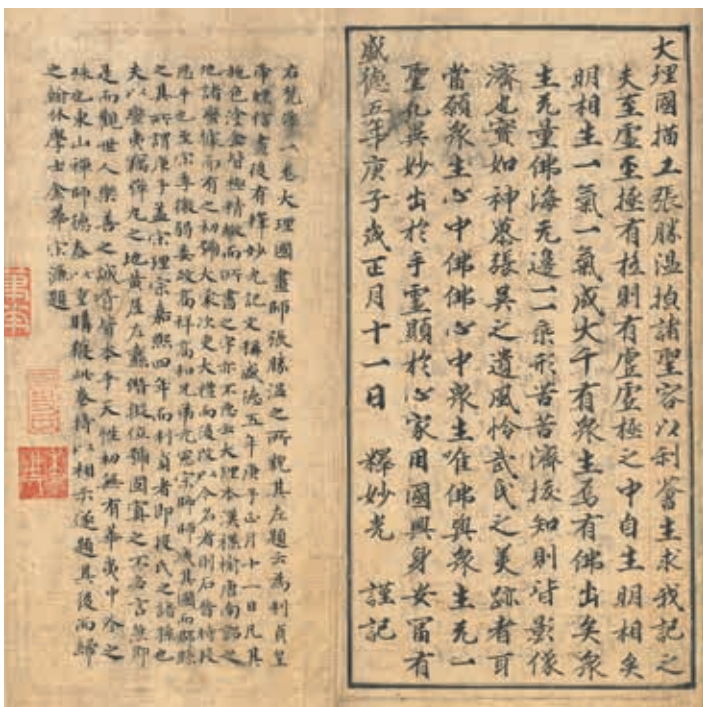 大理國描工張勝溫㒵諸聖容以利蒼生求我記之
夫至虛至極有極則有虛虛極之中自生明相矣
明相生一氣一氣成大千有衆生焉有佛出矣衆
生无量佛海无邊一一乘形苦苦濟拔知則皆影像
濟也實如神慕張吳之遺風恰武氏之美跡者耳
當願衆生心中佛佛心中衆生唯佛與衆生无一
聖凡異妙出於手靈顯於心家用國興身安富有
盛德五年庚子歲正月十一日 釋妙光 謹記
右梵像一卷大理國畫師張勝溫之所貌其左題云爲利貞皇
帝瞟信畫後有釋妙光記文稱盛德五年庚子正月十一日凡其
施色塗金皆極精緻而所書之字亦不惡云大理本漢楪榆唐南詔之
地諸蠻據而有之初號大蒙次更大禮而後改以今名者則石晉時段
思平也至宋季微弱委政高祥高和兄弟元憲宗帥師滅其國而郡縣
之其所謂庚子蓋宋理宗嘉熙四年而利貞者即段氏之諸孫也
夫以蠻夷之地黃屋左纛僭擬位號固寘之不必言然即
是而觀世人樂善之誠胥皆本乎天性初無有華夷中外之
殊也東山禪師德泰以重購獲此卷持以相示遂題其後而歸
之翰林學士金華宋濂題